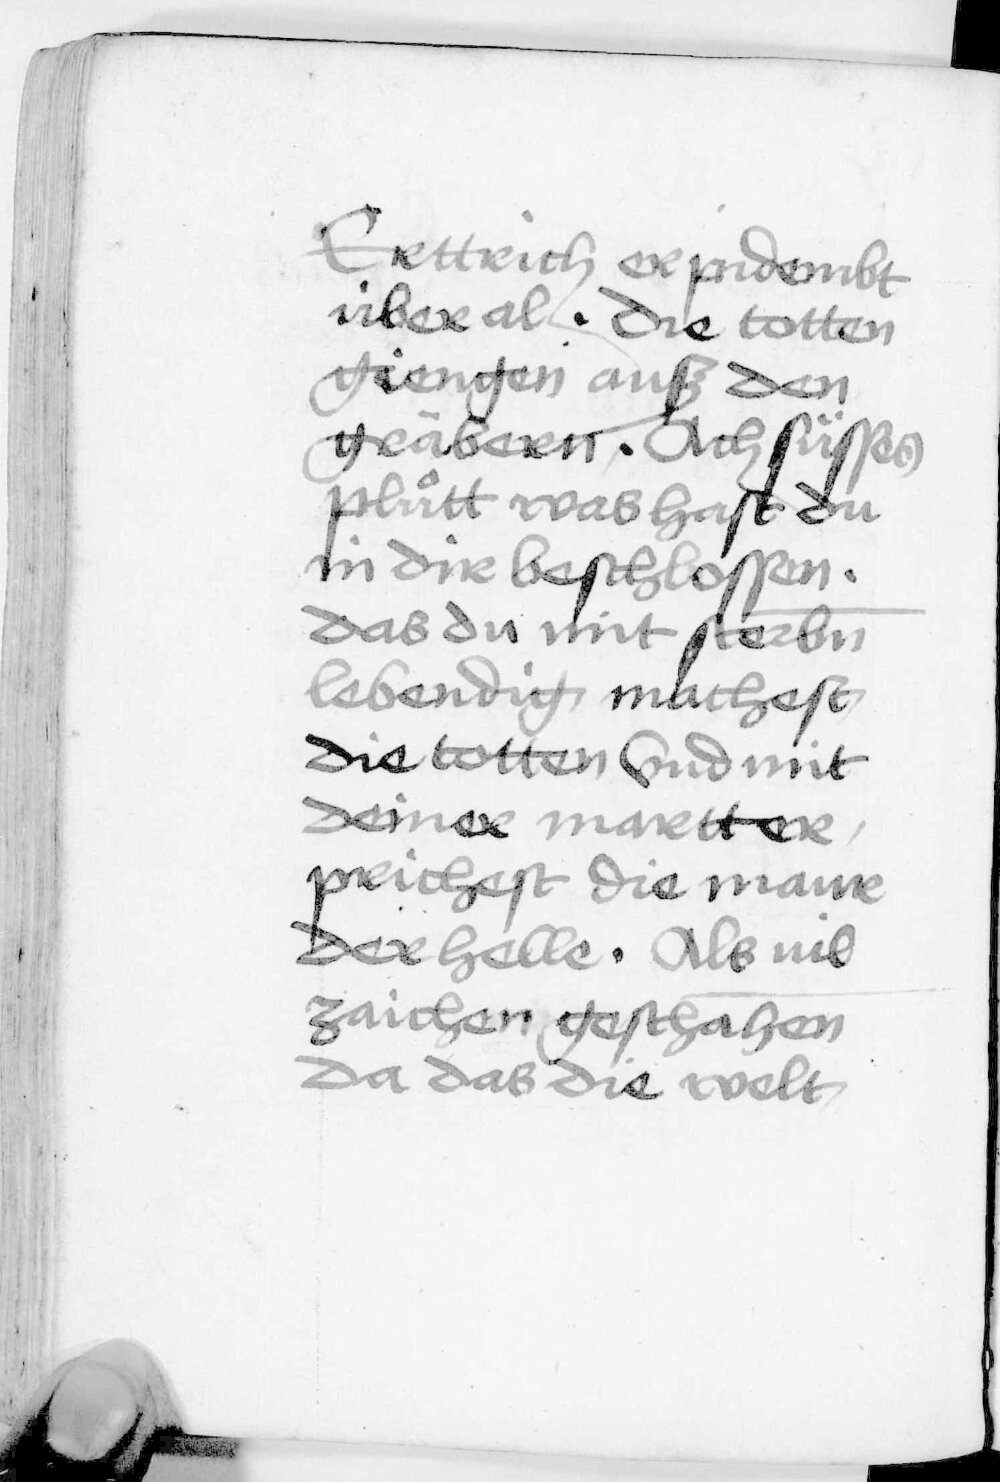 Erttrich erpidembt
über al . Die totten
giengen auß den
gräbern . Ach süsses
plůtt was hast du
in dir beschlossen .
das du mit sterbn̄
lebendig machest
die totten vnd mit
deiner martter
prichest die maur
der helle . Als vil
zaichen geschahen
da das die welt